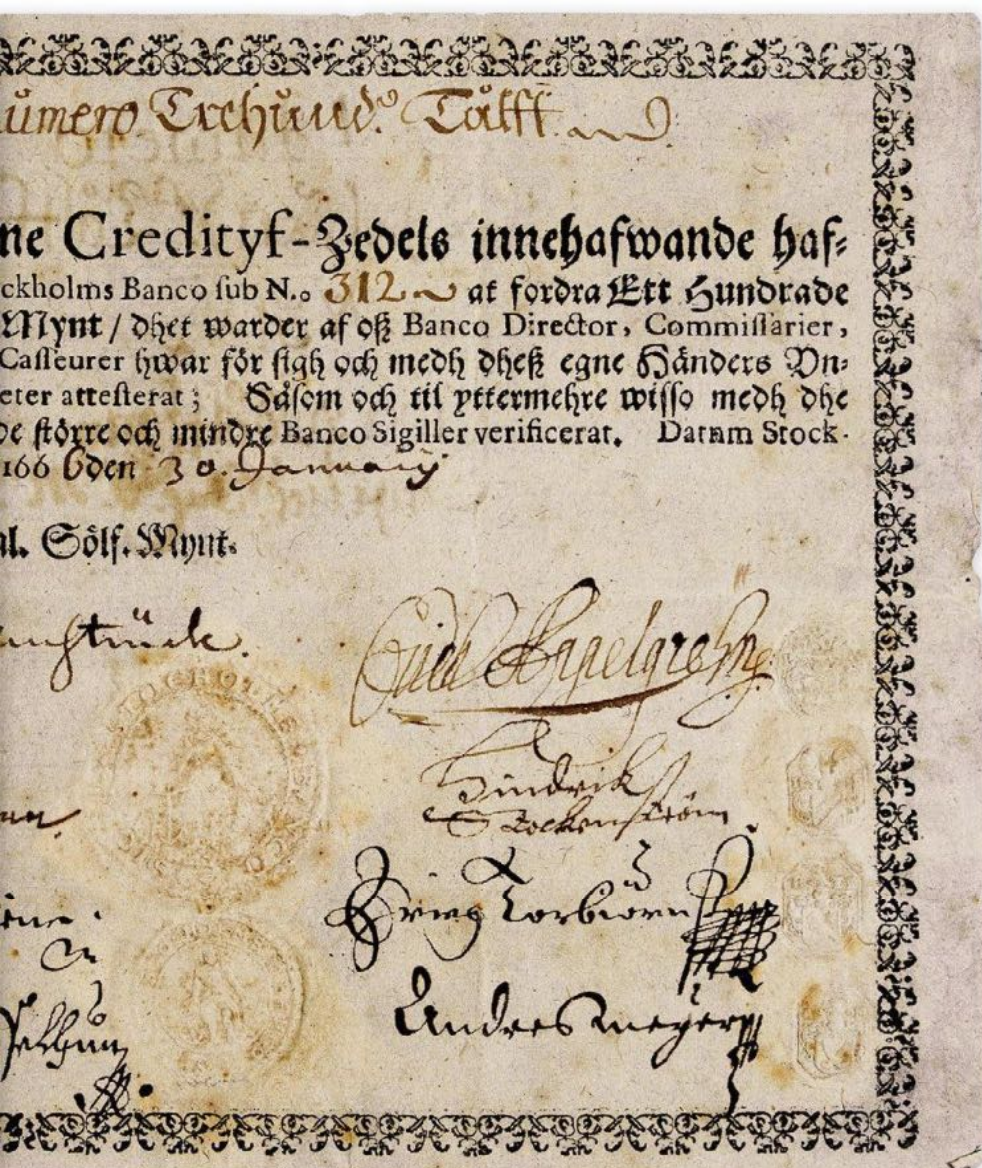 ümero Trehund:º Tålff
ne Credityf-Zedels innehafwande haf-
ckholms Banco ſub N.o 312 at fordra Ett Hundrade
Mynt / dhet warder af oß Banco Director, Commiſſarier,
Caſſeurer hwar för ſigh och medh dheß egne Händers Un-
eter atteſterat; Såſom och til yttermehre wiſſo medh dhe
de ſtörre och mindre Banco Sigiller verificerat. Datum Stock-
166 6 den 30. January
al. Sölf. Mynt.
Hindrik
Stockenſtröm
Torbiörn
Andres meyer